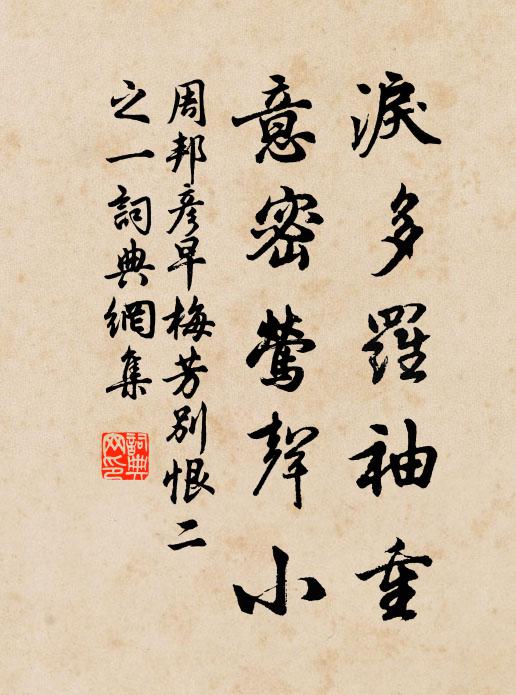 淚多羅袖重
意密鶯聲小
周邦彥早梅芳別恨二
之一詞典網集
詞典
网印